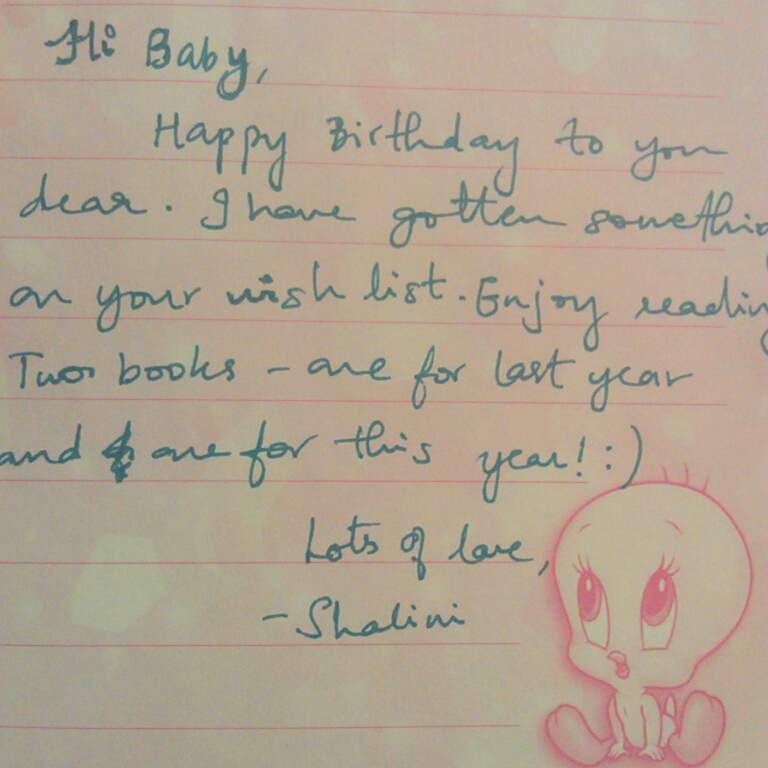 Hi Baby,
Happy Birthday to you
dear. I have gotten somethin
on your wish list. Enjoy readin
Two books - one for last year
and one for this year! :)
Lots of love,
- Shalini